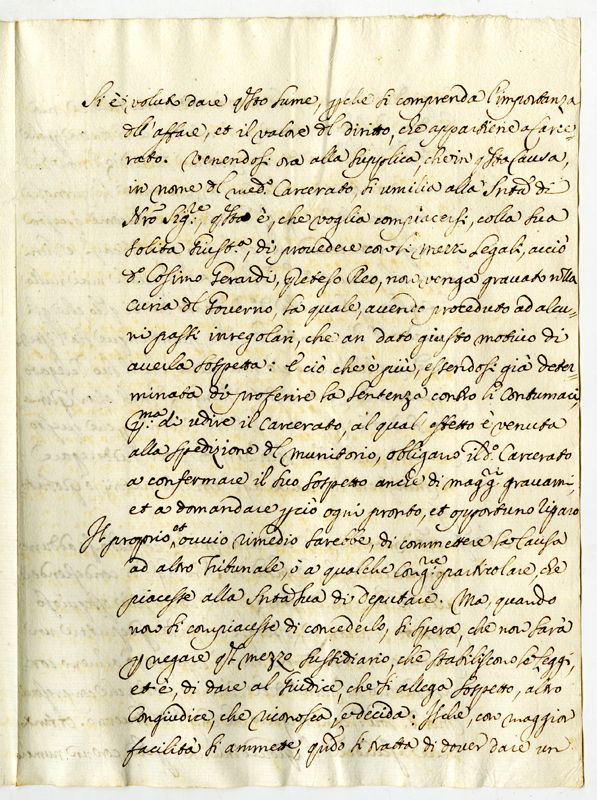 Si è voluto dare qsto lume, pche si comprenda l'importanza
dll'affare, et il valore dl diritto, che appartiene a Carce=
rato. Venendosi ora alla supplica, che in qsta Causa,
in nome dl med.° Carcerato, si umilia alla Sntà di
Nro Sig.re qsta è, che voglia compiacersi, colla sua
solita Giust.a, di provedere con li mezzi legali, acciò
d.° Cosimo Gerardi, preteso Reo, non venga gravato nlla
Curia dl Governo, la quale, avendo proceduto ad alcu=
ni passi irregolari, che an dato giusto motivo di
averla sospetta: e ciò che è più, essendosi già deter=
minata di proferire la sentenza contro li Contumaci,
pma di udire il Carcerato, al qual effetto è venuta
alla spedizione dl munitorio, obligano il d.° Carcerato
a confermare il suo sospetto anche di magg.ri gravami,
et a domandare pciò ogni pronto, et opportuno riparo
Il proprio, et ovvio rimedio sarebbe, di commettere la Causa
ad altro Tribunale, ò a qualche Cong.ne particolare, che
piacesse alla Sntà Sua di deputare. Ma, quando
non si compiacesse di concederlo, si spera, che non sarà
p negare ql mezzo sussidiario, che stabiliscono le leggi,
et è, di dare al Giudice che si allega sospetto, altro
Congiudice, che riconosca, e decida: Il che, con maggior
facilità si ammette, qndo si tratta di dover dare un